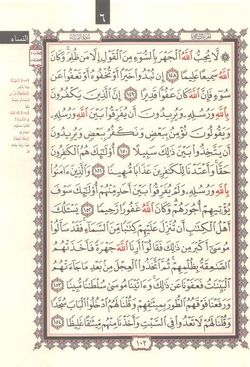 ٦
النساء
۞ لَّا يُحِبُّ اللَّهُ الْجَهْرَ بِالسُّوءِ مِنَ الْقَوْلِ إِلَّا مَن ظُلِمَ ۚ وَكَانَ
اللَّهُ سَمِيعًا عَلِيمًا ١٤٨ إِن تُبْدُوا خَيْرًا أَوْ تُخْفُوهُ أَوْ تَعْفُوا عَن
سُوءٍ فَإِنَّ اللَّهَ كَانَ عَفُوًّا قَدِيرًا ١٤٩ إِنَّ الَّذِينَ يَكْفُرُونَ
بِاللَّهِ وَرُسُلِهِ وَيُرِيدُونَ أَن يُفَرِّقُوا بَيْنَ اللَّهِ وَرُسُلِهِ
وَيَقُولُونَ نُؤْمِنُ بِبَعْضٍ وَنَكْفُرُ بِبَعْضٍ وَيُرِيدُونَ
أَن يَتَّخِذُوا بَيْنَ ذَٰلِكَ سَبِيلًا ١٥٠ أُولَٰئِكَ هُمُ الْكَافِرُونَ
حَقًّا ۚ وَأَعْتَدْنَا لِلْكَافِرِينَ عَذَابًا مُّهِينًا ١٥١ وَالَّذِينَ ءَامَنُوا
بِاللَّهِ وَرُسُلِهِ وَلَمْ يُفَرِّقُوا بَيْنَ أَحَدٍ مِّنْهُمْ أُولَٰئِكَ سَوْفَ
يُؤْتِيهِمْ أُجُورَهُمْ ۗ وَكَانَ اللَّهُ غَفُورًا رَّحِيمًا ١٥٢ يَسْـَٔلُكَ
أَهْلُ الْكِتَٰبِ أَن تُنَزِّلَ عَلَيْهِمْ كِتَٰبًا مِّنَ السَّمَاءِ ۚ فَقَدْ سَأَلُوا
مُوسَىٰ أَكْبَرَ مِن ذَٰلِكَ فَقَالُوا أَرِنَا اللَّهَ جَهْرَةً فَأَخَذَتْهُمُ
الصَّٰعِقَةُ بِظُلْمِهِمْ ۚ ثُمَّ اتَّخَذُوا الْعِجْلَ مِن بَعْدِ مَا جَاءَتْهُمُ
الْبَيِّنَٰتُ فَعَفَوْنَا عَن ذَٰلِكَ ۚ وَءَاتَيْنَا مُوسَىٰ سُلْطَٰنًا مُّبِينًا ١٥٣
وَرَفَعْنَا فَوْقَهُمُ الطُّورَ بِمِيثَٰقِهِمْ وَقُلْنَا لَهُمُ ادْخُلُوا الْبَابَ سُجَّدًا
وَقُلْنَا لَهُمْ لَا تَعْدُوا فِي السَّبْتِ وَأَخَذْنَا مِنْهُم مِّيثَٰقًا غَلِيظًا ١٥٤
١٠٢